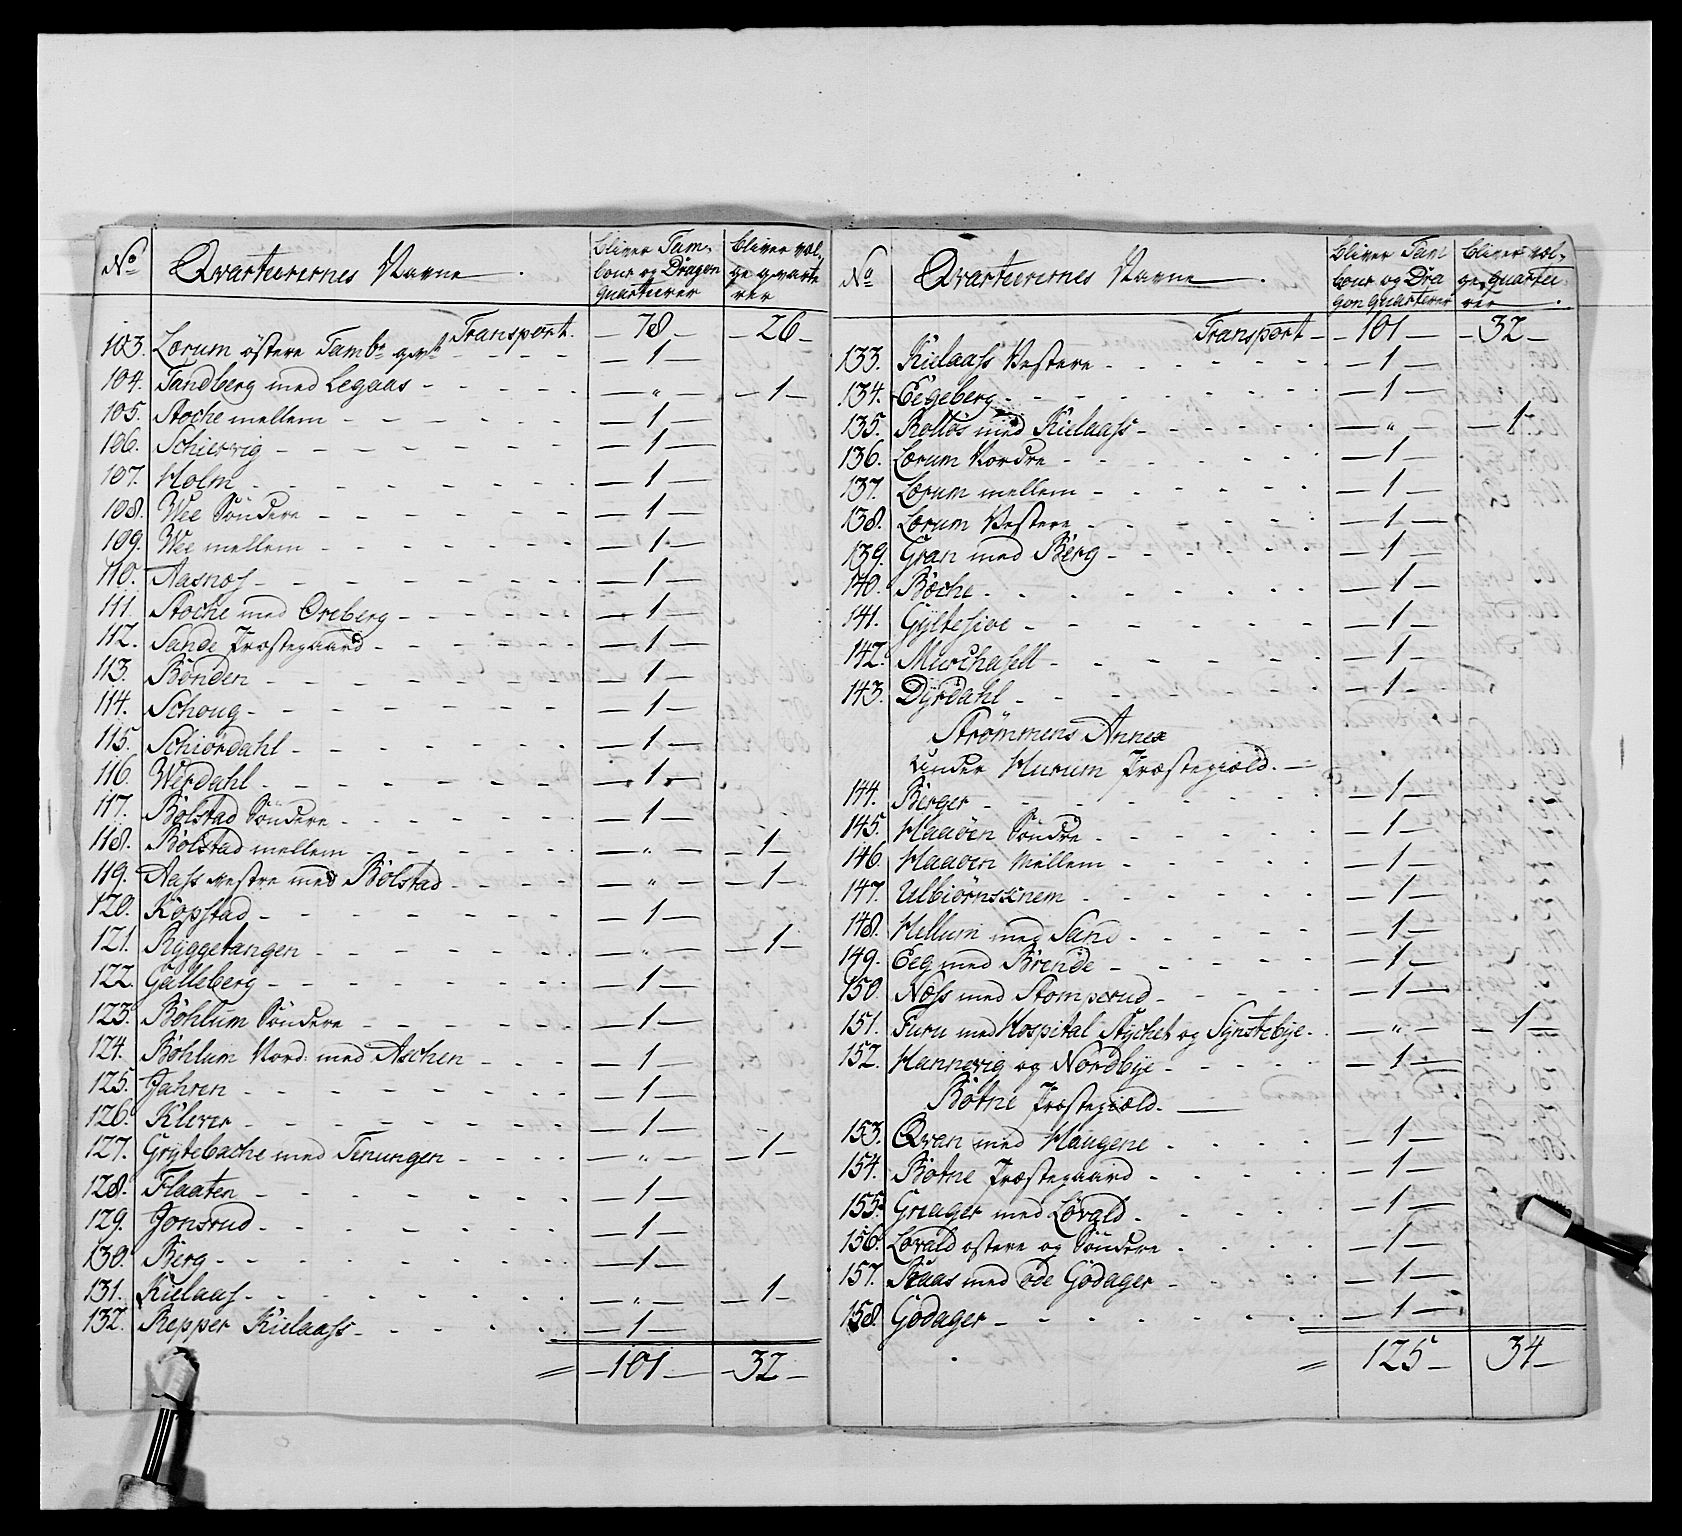 No Qvarteerernes Navne. bliver Tambour og Dragon quarteerer bliver vælge qvarterer
Transport. 78 26
103. Lorum östere Tambr qvart 1
104. Sandberg med Legaas " 1
105. Stoche mellem 1
106. Schiervig 1
107. Holm 1
108. Wee Söndere 1
109. Wee mellem 1
110. Aasnos 1
111. Stoche med Oreberg 1
112. Sande Præstegaard 1
113. Bonden 1
114. Schoug 1
115. Schiordahl 1
116. Werdahl 1
117. Bolstad Söndere 1
118. Bolstad mellem " 1
119. Aass vestre med Bolstad " 1
120. Kopstad 1
121. Ryggetangen " 1
122. Galleberg 1
123. Bohlum Söndere 1
124. Bohlum Nord: med Aschen 1
125. Jahren 1
126. Klever 1
127. Grytebache med Tenungen " 1
128. Flaaten 1
129. Jonsrud 1
130. Berg 1
131. Kielaas " 1
132. Repper Kielaass 1
101 32
No Qvarteerernes Navne. bliver Tambour og Dragon quarterer bliver vælge quarteerer
Transport 101 32
133. Kielaass Vestere 1
134. Eegeberg 1
135. Roltos med Kielaass " 1
136. Lorum Nordre 1
137. Lorum mellem 1
138. Lorum Vestere 1
139. Gran med Berg 1
140. Bæche 1
141. Gyltesioe 1
142. Murchasell 1
143. Dyrdahl 1
Strömmens Annex
under Hurum Præstegiæld.
144. Berger 1
145. Haaöen Söndre 1
146. Haaöen Mellem 1
147. Ulbiörnssnem 1
148. Hellum med Sand 1
149. Eeg med Brende 1
150. Næss med Stomperud 1
151. Furu med Hospital Stychet og Synstebye " 1
152. Hannevig og Nordbye 1
Botne Præstegiæld.
153. Qvan med Haugene 1
154. Botne Præstegaard 1
155. Greager med Lövald 1
156. Lovald ostere og Söndere 1
157. Raas med öde Godager 1
158. Godager 1
125 34